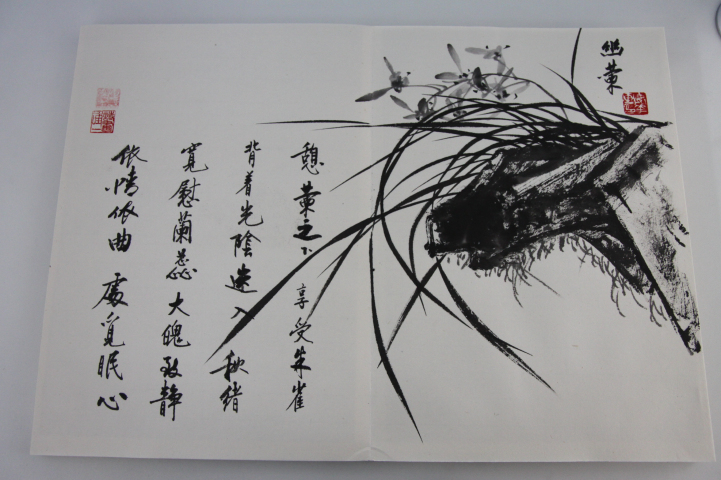 幽葉
憩葉之下 享受朱雀
背着光陰速入 秋緒
寬慰蘭蕊大愧致靜
依情依曲 處覓眠心